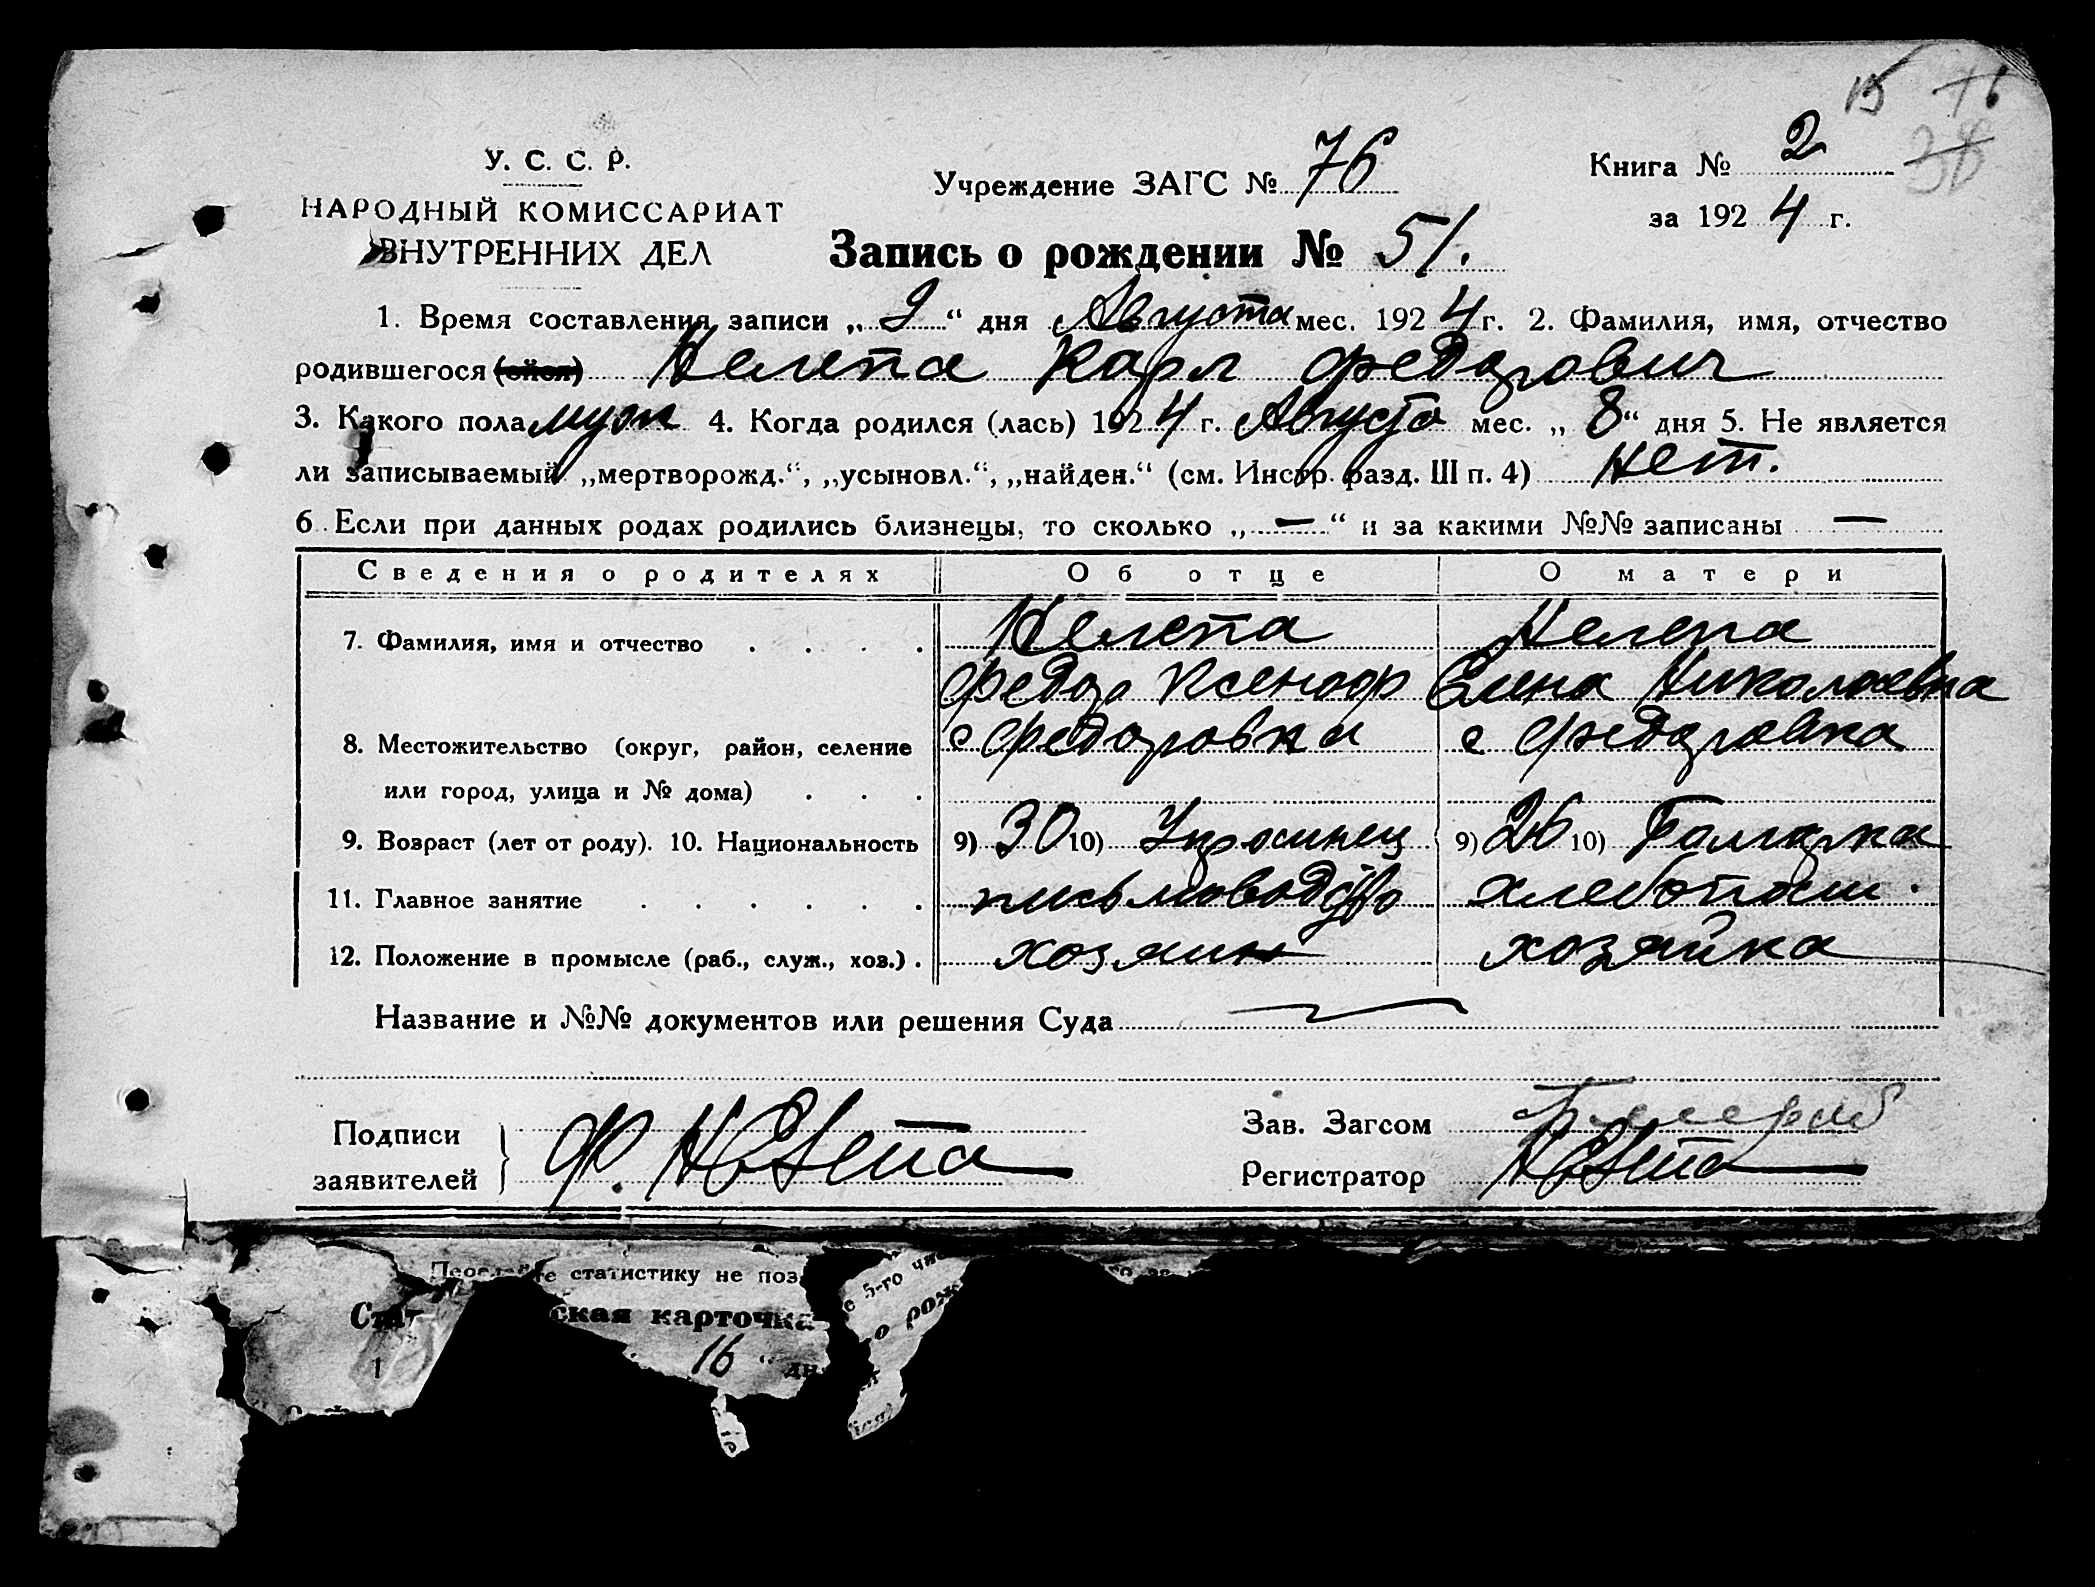 15 76
38
У. С. С. Р.
НАРОДНЫЙ КОМИССАРИАТ
ВНУТРЕННИХ ДЕЛ
Учреждение ЗАГС № 76
Книга № 2
за 1924 г.
Запись о рождении № 51.
1. Время составления записи „9“ дня Августа мес. 1924 г. 2. Фамилия, имя, отчество
родившегося (ейся) Нелепа Карл Федорович
3. Какого пола муж 4. Когда родился (лась) 1924 г. Августа мес. „8“ дня 5. Не является
ли записываемый „мертворожд.“, „усыновл.“, „найден.“ (см. Инстр. разд. III п. 4) нет.
6. Если при данных родах родились близнецы, то сколько „—“ и за какими №№ записаны —
Сведения о родителях Об отце О матери
7. Фамилия, имя и отчество . . . . Нелепа Нелепа
Федор Ксеноф Елена Николаевна
8. Местожительство (округ, район, селение с Федоровка с Федоровка
или город, улица и № дома) . . .
9. Возраст (лет от роду). 10. Национальность 9) 30 10) Украинец 9) 26 10) Болгарка
11. Главное занятие . . . . . . письмоводство хлебопаш.
12. Положение в промысле (раб., служ., хоз.) . хозяин хозяйка
Название и №№ документов или решения Суда
Подписи
заявителей
Ф. Нелепа
Зав. Загсом
Регистратор Нелепа
статистику не поз
ская карточка
16 “ дн
1
е 5-го чи
о рож